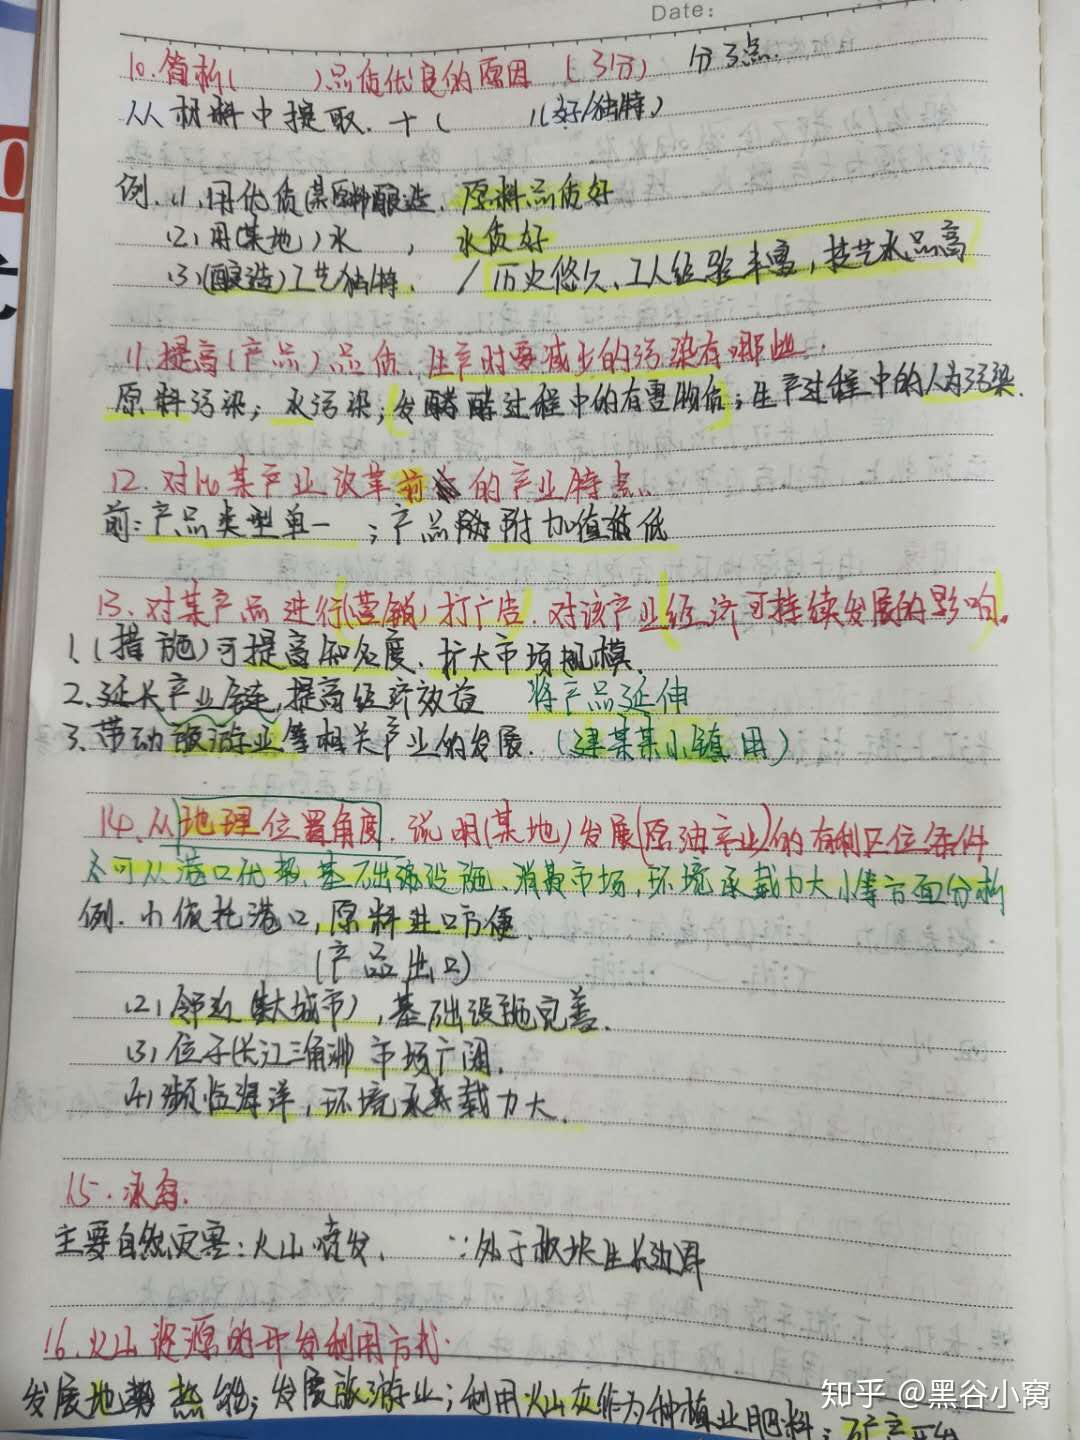 Date:
10.简析(　　)品质优良的原因 (3分) 分3点.
从材料中提取.+(　　)(好/独特)
例.(1).用优质(某原料)酿造.原料品质好
(2)用(某地)水,水质好
(3)(酿造)工艺独特./历史悠久、工人经验丰富,技艺水品高
11.提高(产品)品质.生产时要减少的污染有哪些.
原料污染;水污染;发酵过程中的有害物质;生产过程中的人为污染.
12.对比某产业改革前的产业特点.
前:产品类型单一;产品附加值低
13.对某产品进行(营销)打广告.对该产业经济可持续发展的影响.
1.(措施)可提高知名度、扩大市场规模.
2.延长产业链,提高经济效益 将产品延伸
3.带动旅游业等相关产业的发展.(建某某小镇用)
14.从地理位置角度.说明(某地)发展(原油产业)的有利区位条件
可从港口优势、基础设施、消费市场,环境承载力大小等方面分析
例.(1)依托港口,原料进口方便.
(产品出口)
(2)邻近(某大城市),基础设施完善.
(3)位于(长江三角洲)市场广阔.
(4)濒临海洋,环境承载力大.
15.冰岛.
主要自然灾害:火山喷发. ∵处于板块生长边界
16.火山资源的开发利用方式.
发展地热能;发展旅游业;利用火山灰作为种植业肥料;矿产开发
知乎 @黑谷小窝